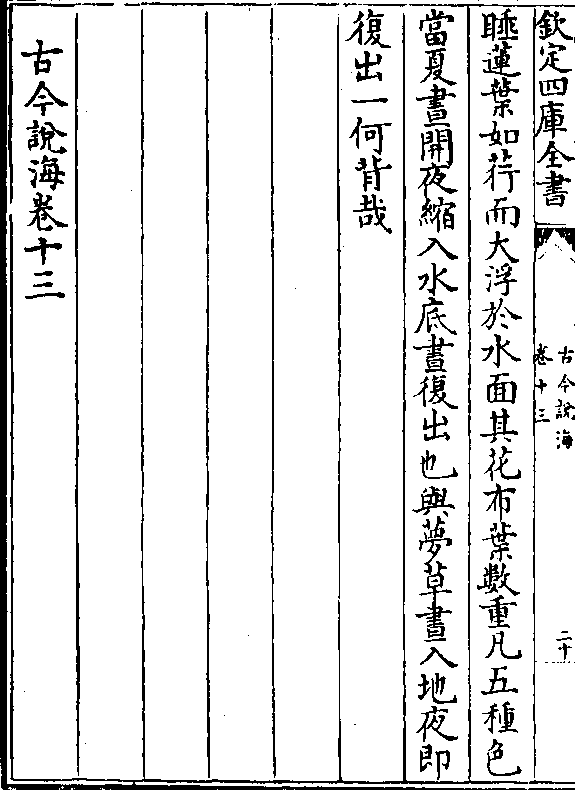 欽定四庫全書
古今說海
卷十三
二十
睡蓮葉如荇而大浮於水面其花布葉數重凡五種色
當夏晝開夜縮入水底晝復出也與夢草晝入地夜即
復出一何背哉
古今說海卷十三